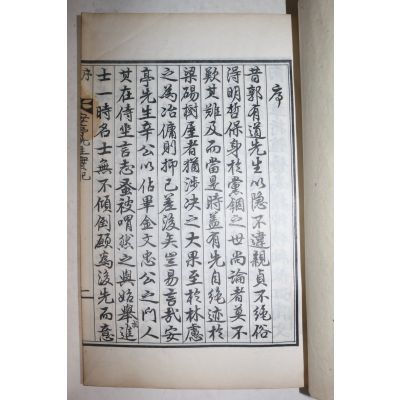 序
昔郭有道先生以隱不違親貞不絶俗
得明哲保身於黨錮之世尚論者莫不
歎其難及而當是時盖有先自絶迹於
梁碭樹屋者猶涉決之大果至於林慮
之爲冶傭則抑已差後矣豈易言哉安
亭先生辛公以佔畢金文忠公之門人
其在侍坐言志蚤被喟然之與始舉進
士一時名士無不傾倒顧爲後先而意
安亭先生實記
序
一